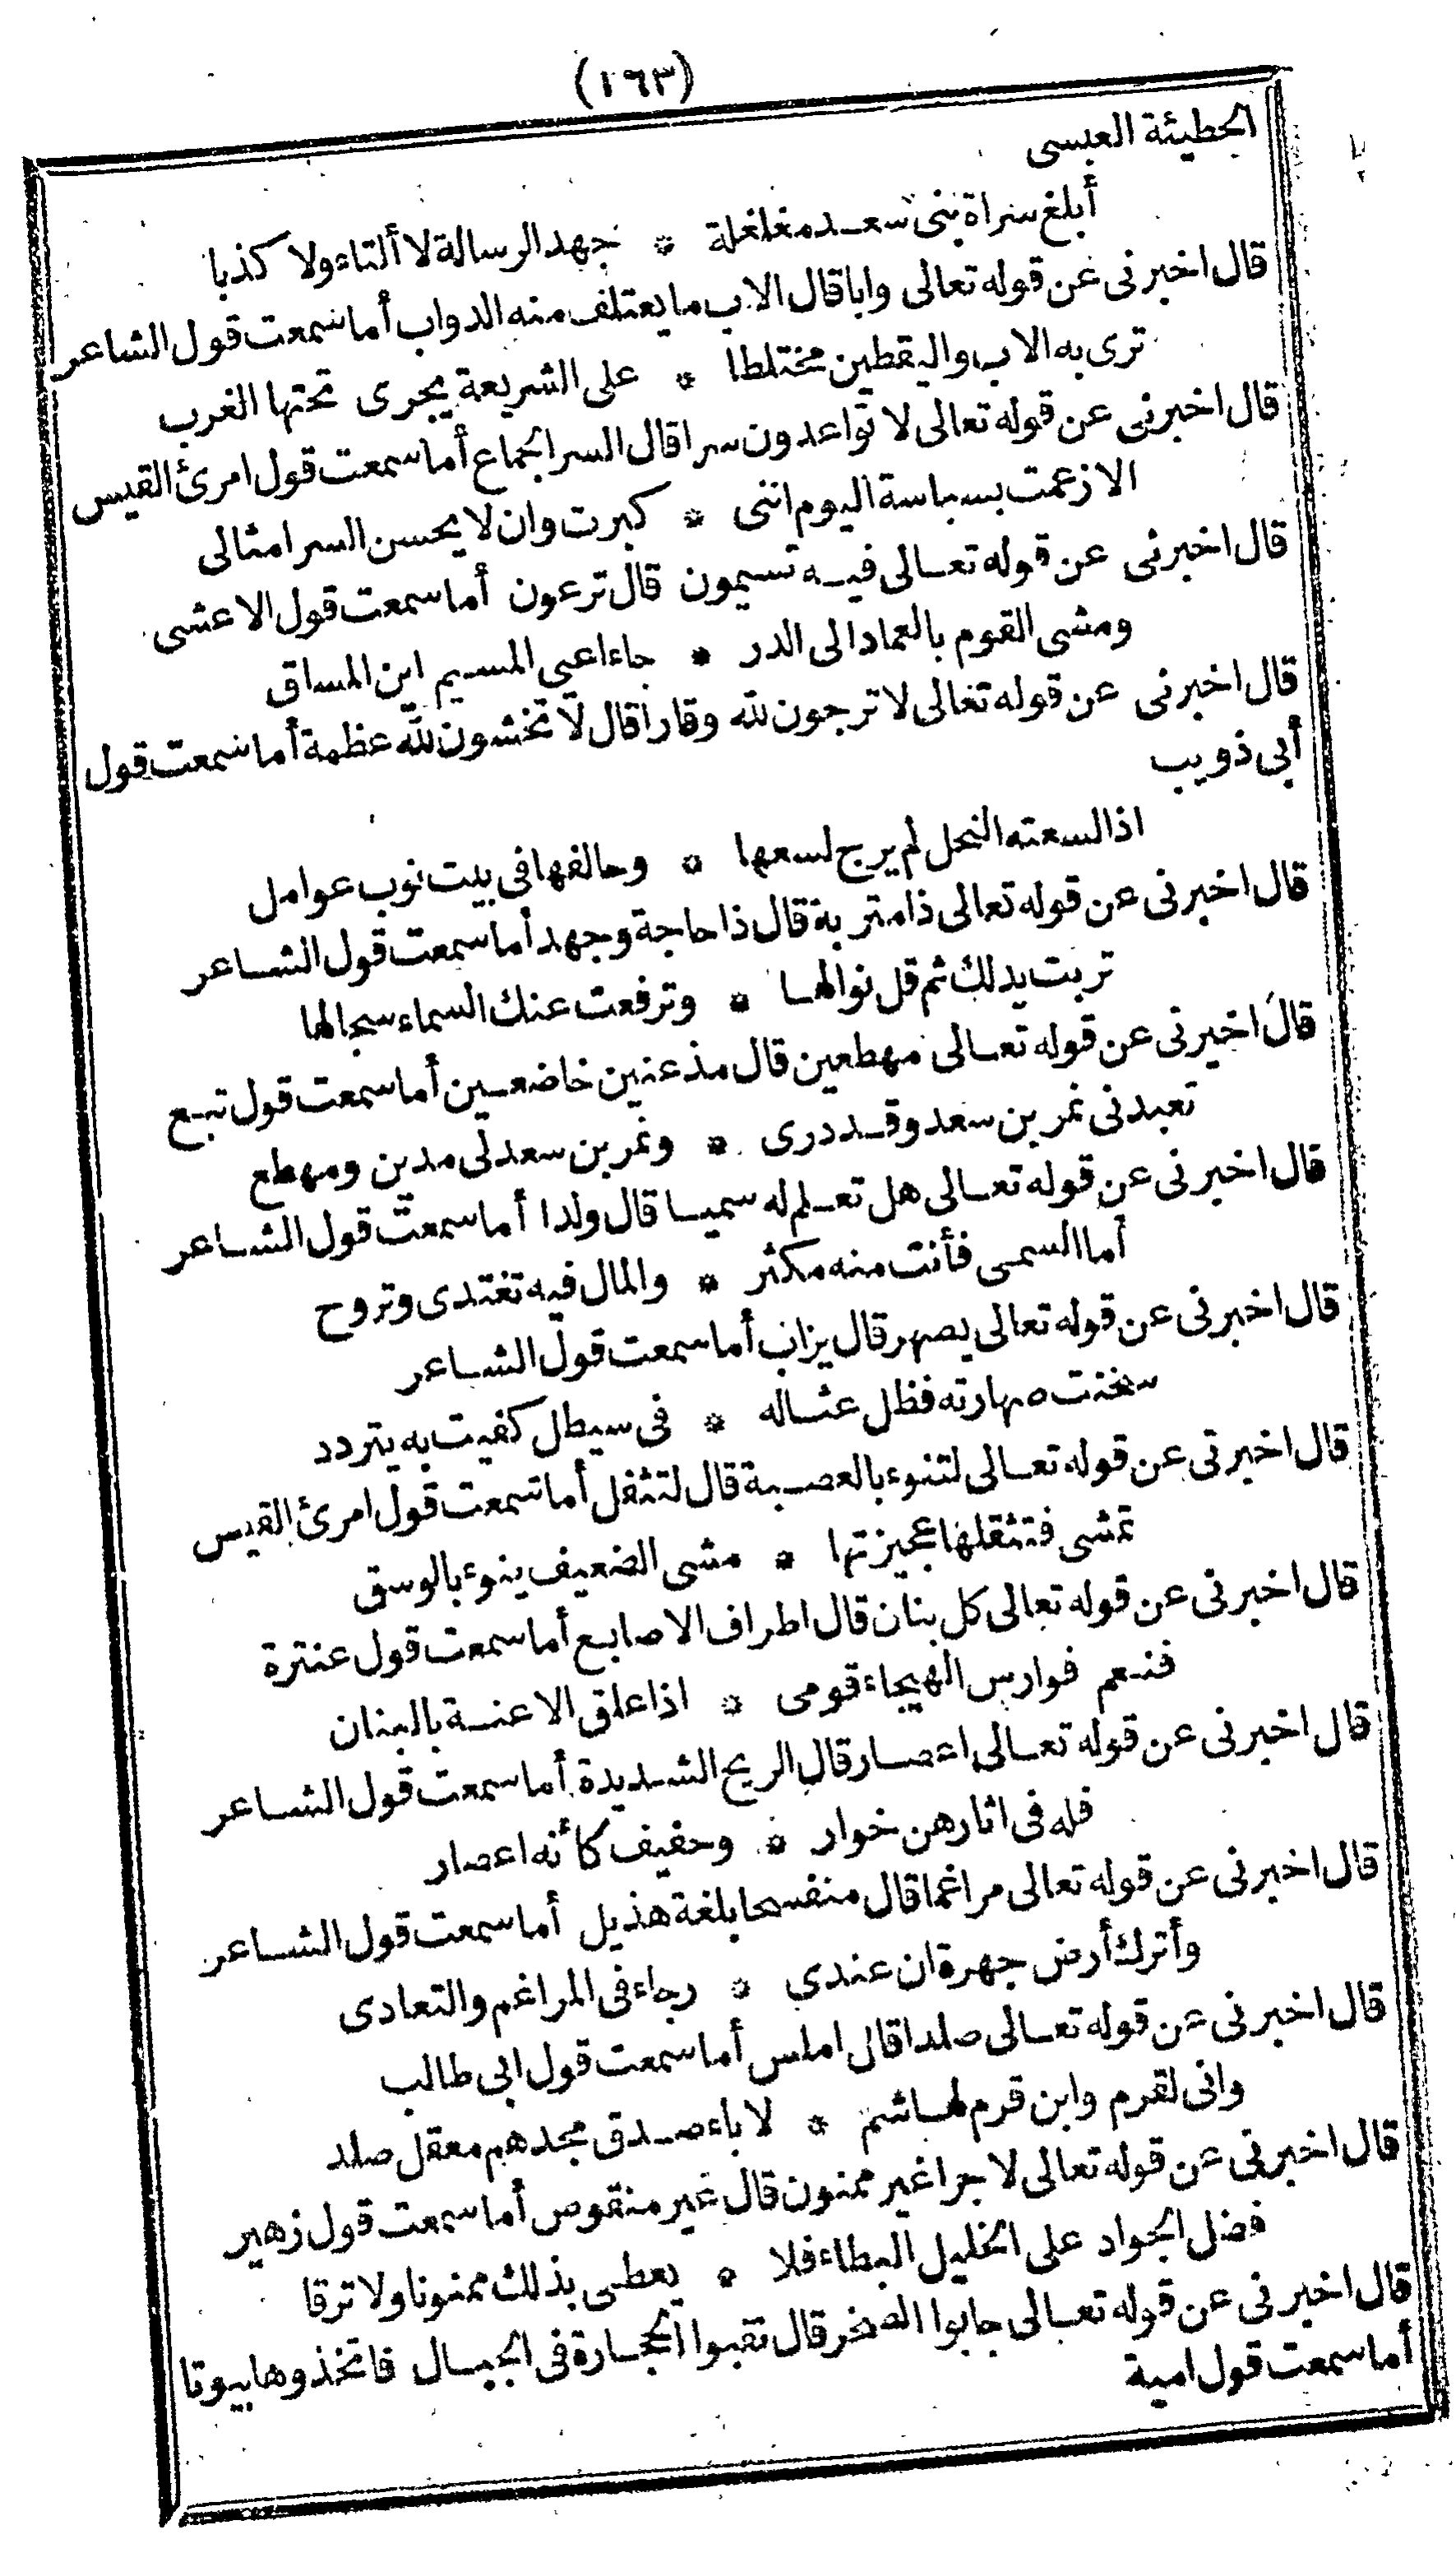 (١٦٣)
الحطيئة العبسى
أبلغ سراة بنى سعد مغلغلة * جهد الرسالة لا ألتاء ولا كذبا
قال اخبرنى عن قوله تعالى وابا قال الاب ما يعتلف منه الدواب أما سمعت قول الشاعر
ترى به الاب واليقطين مختلطا * على الشريعة يجرى تحتها الغرب
قال اخبرنى عن قوله تعالى لا تواعدون سرا قال السر الجماع أما سمعت قول امرئ القيس
الا زعمت بسباسة اليوم اننى * كبرت وان لا يحسن السر امثالى
قال اخبرنى عن قوله تعالى فيه تسيمون قال ترعون أما سمعت قول الاعشى
ومشى القوم بالعماد الى الدر * حاء اعيى المسيم اين المساق
قال اخبرنى عن قوله تعالى لا ترجون لله وقارا قال لا تخشون لله عظمة أما سمعت قول
أبى ذويب
اذا لسعته النحل لم يرج لسعها * وحالفها فى بيت نوب عوامل
قال اخبرنى عن قوله تعالى ذا متربة قال ذا حاجة وجهد أما سمعت قول الشاعر
تربت يد لك ثم قل نوالها * وترفعت عنك السماء سجالها
قال اخبرنى عن قوله تعالى مهطعين قال مذعنين خاضعين أما سمعت قول تبع
تعبدنى نمر بن سعد وقد درى * ونمر بن سعد لى مدين ومهطع
قال اخبرنى عن قوله تعالى هل تعلم له سميا قال ولدا أما سمعت قول الشاعر
أما السمى فأنت منه مكثر * والمال فيه تغتدى وتروح
قال اخبرنى عن قوله تعالى يصهر قال يزاب أما سمعت قول الشاعر
سخنت صهارته فظل عثاله * فى سيطل كفيت به يتردد
قال اخبرنى عن قوله تعالى لتنوء بالعصبة قال لتثقل أما سمعت قول امرئ القيس
تمشى فتثقلها عجيزتها * مشى الضعيف ينوء بالوسق
قال اخبرنى عن قوله تعالى كل بنان قال اطراف الاصابع أما سمعت قول عنترة
فنعم فوارس الهيجاء قومى * اذا علق الاعنة بالبنان
قال اخبرنى عن قوله تعالى اعصار قال الريح الشديدة أما سمعت قول الشاعر
فله فى اثارهن خوار * وحفيف كأنه اعصار
قال اخبرنى عن قوله تعالى مراغما قال منفسحا بلغة هذيل أما سمعت قول الشاعر
وأترك أرض جهرة ان عندى * رجاء فى المراغم والتعادى
قال اخبرنى عن قوله تعالى صلدا قال املس أما سمعت قول ابى طالب
وانى لقرم وابن قرم لهاشم * لاباء صدق مجدهم معقل صلد
قال اخبرنى عن قوله تعالى لاجرا غير ممنون قال غير منقوص أما سمعت قول زهير
فضل الجواد على الخليل البطاء فلا * يعطى بذلك ممنونا ولا ترقا
قال اخبرنى عن قوله تعالى جابوا الصخر قال نقبوا الحجارة فى الجبال فاتخذوها بيوتا
أما سمعت قول امية